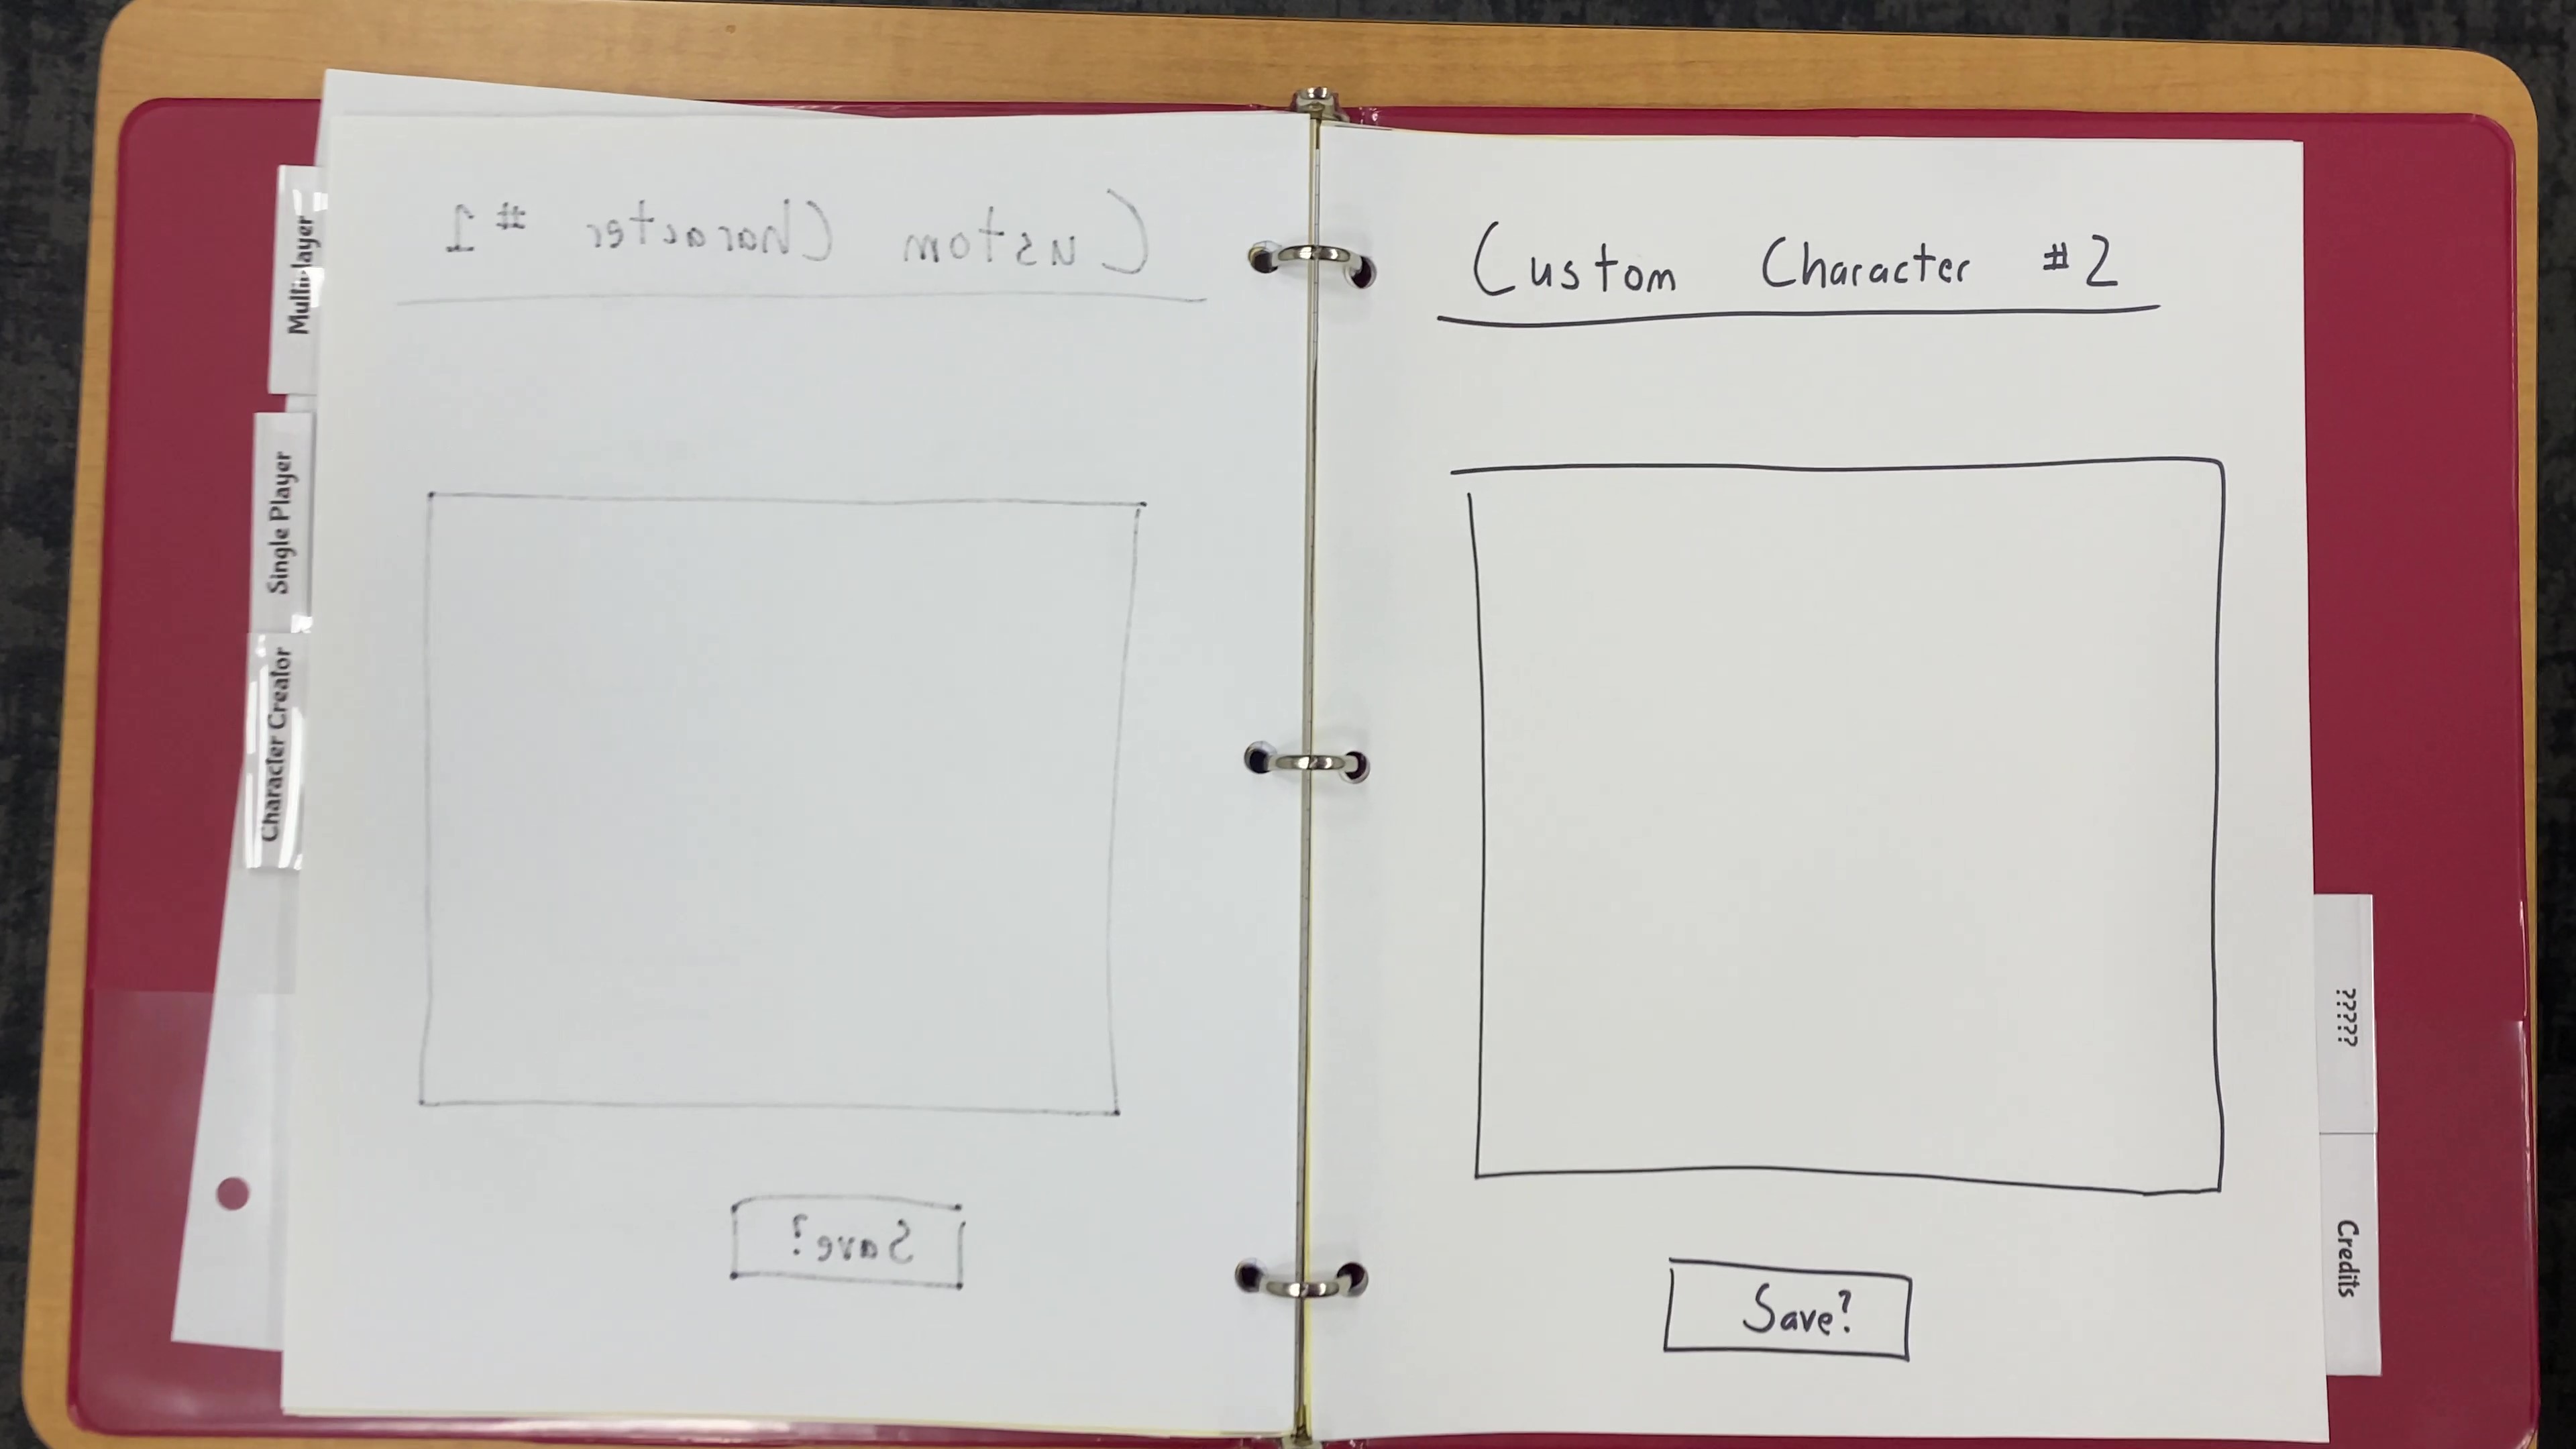 Multiplayer
Single Player
Character Creator
Custom Character #1
Save?
Custom Character #2
Save?
?????
Credits